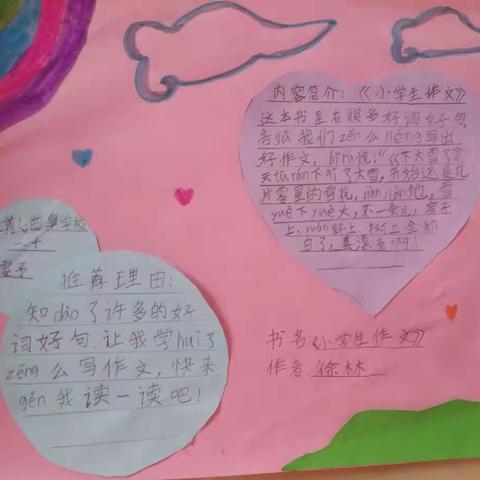 内容简介:《小学生作文》
这本书里有很多好词好句,
告sù我们zěn么néng写出
好作文,bǐrú说:"《下大雪了》
天tūrán下qǐ了大雪,开始还是几
片零星的雪花,jiàn jiàn地,雪
yuè下yuè大,不一会儿,房子
上、yuàn子上、树上全都
白了,真漂亮啊!
推荐理由:
知dào了许多的好
词好句,让我学huì了
zěng么写作文,快来
gēn我读一读吧!
书名《小学生作文》
作者 徐林